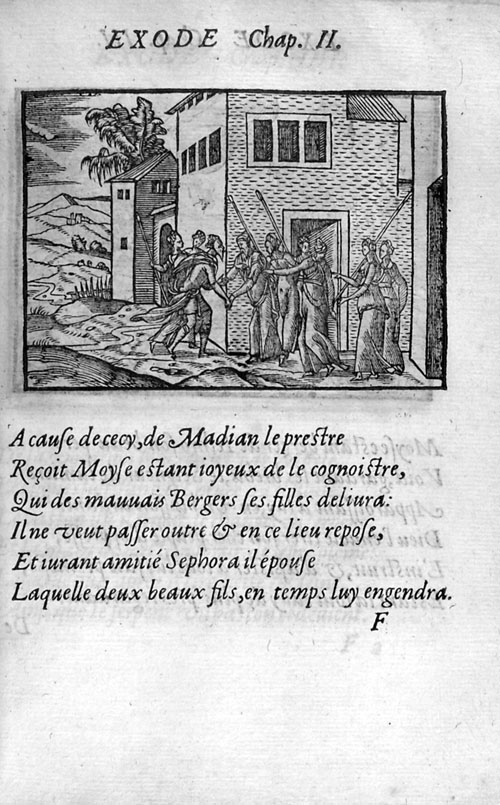 EXODE Chap. II.
A cause de cecy, de Madian le prestre
Reçoit Moyse estant ioyeux de le cognoistre,
Qui des mauuais Bergers ses filles deliura:
Il ne veut passer outre & en ce lieu repose,
Et iurant amitié Sephora il épouse
Laquelle deux beaux fils, en temps luy engendra.
F